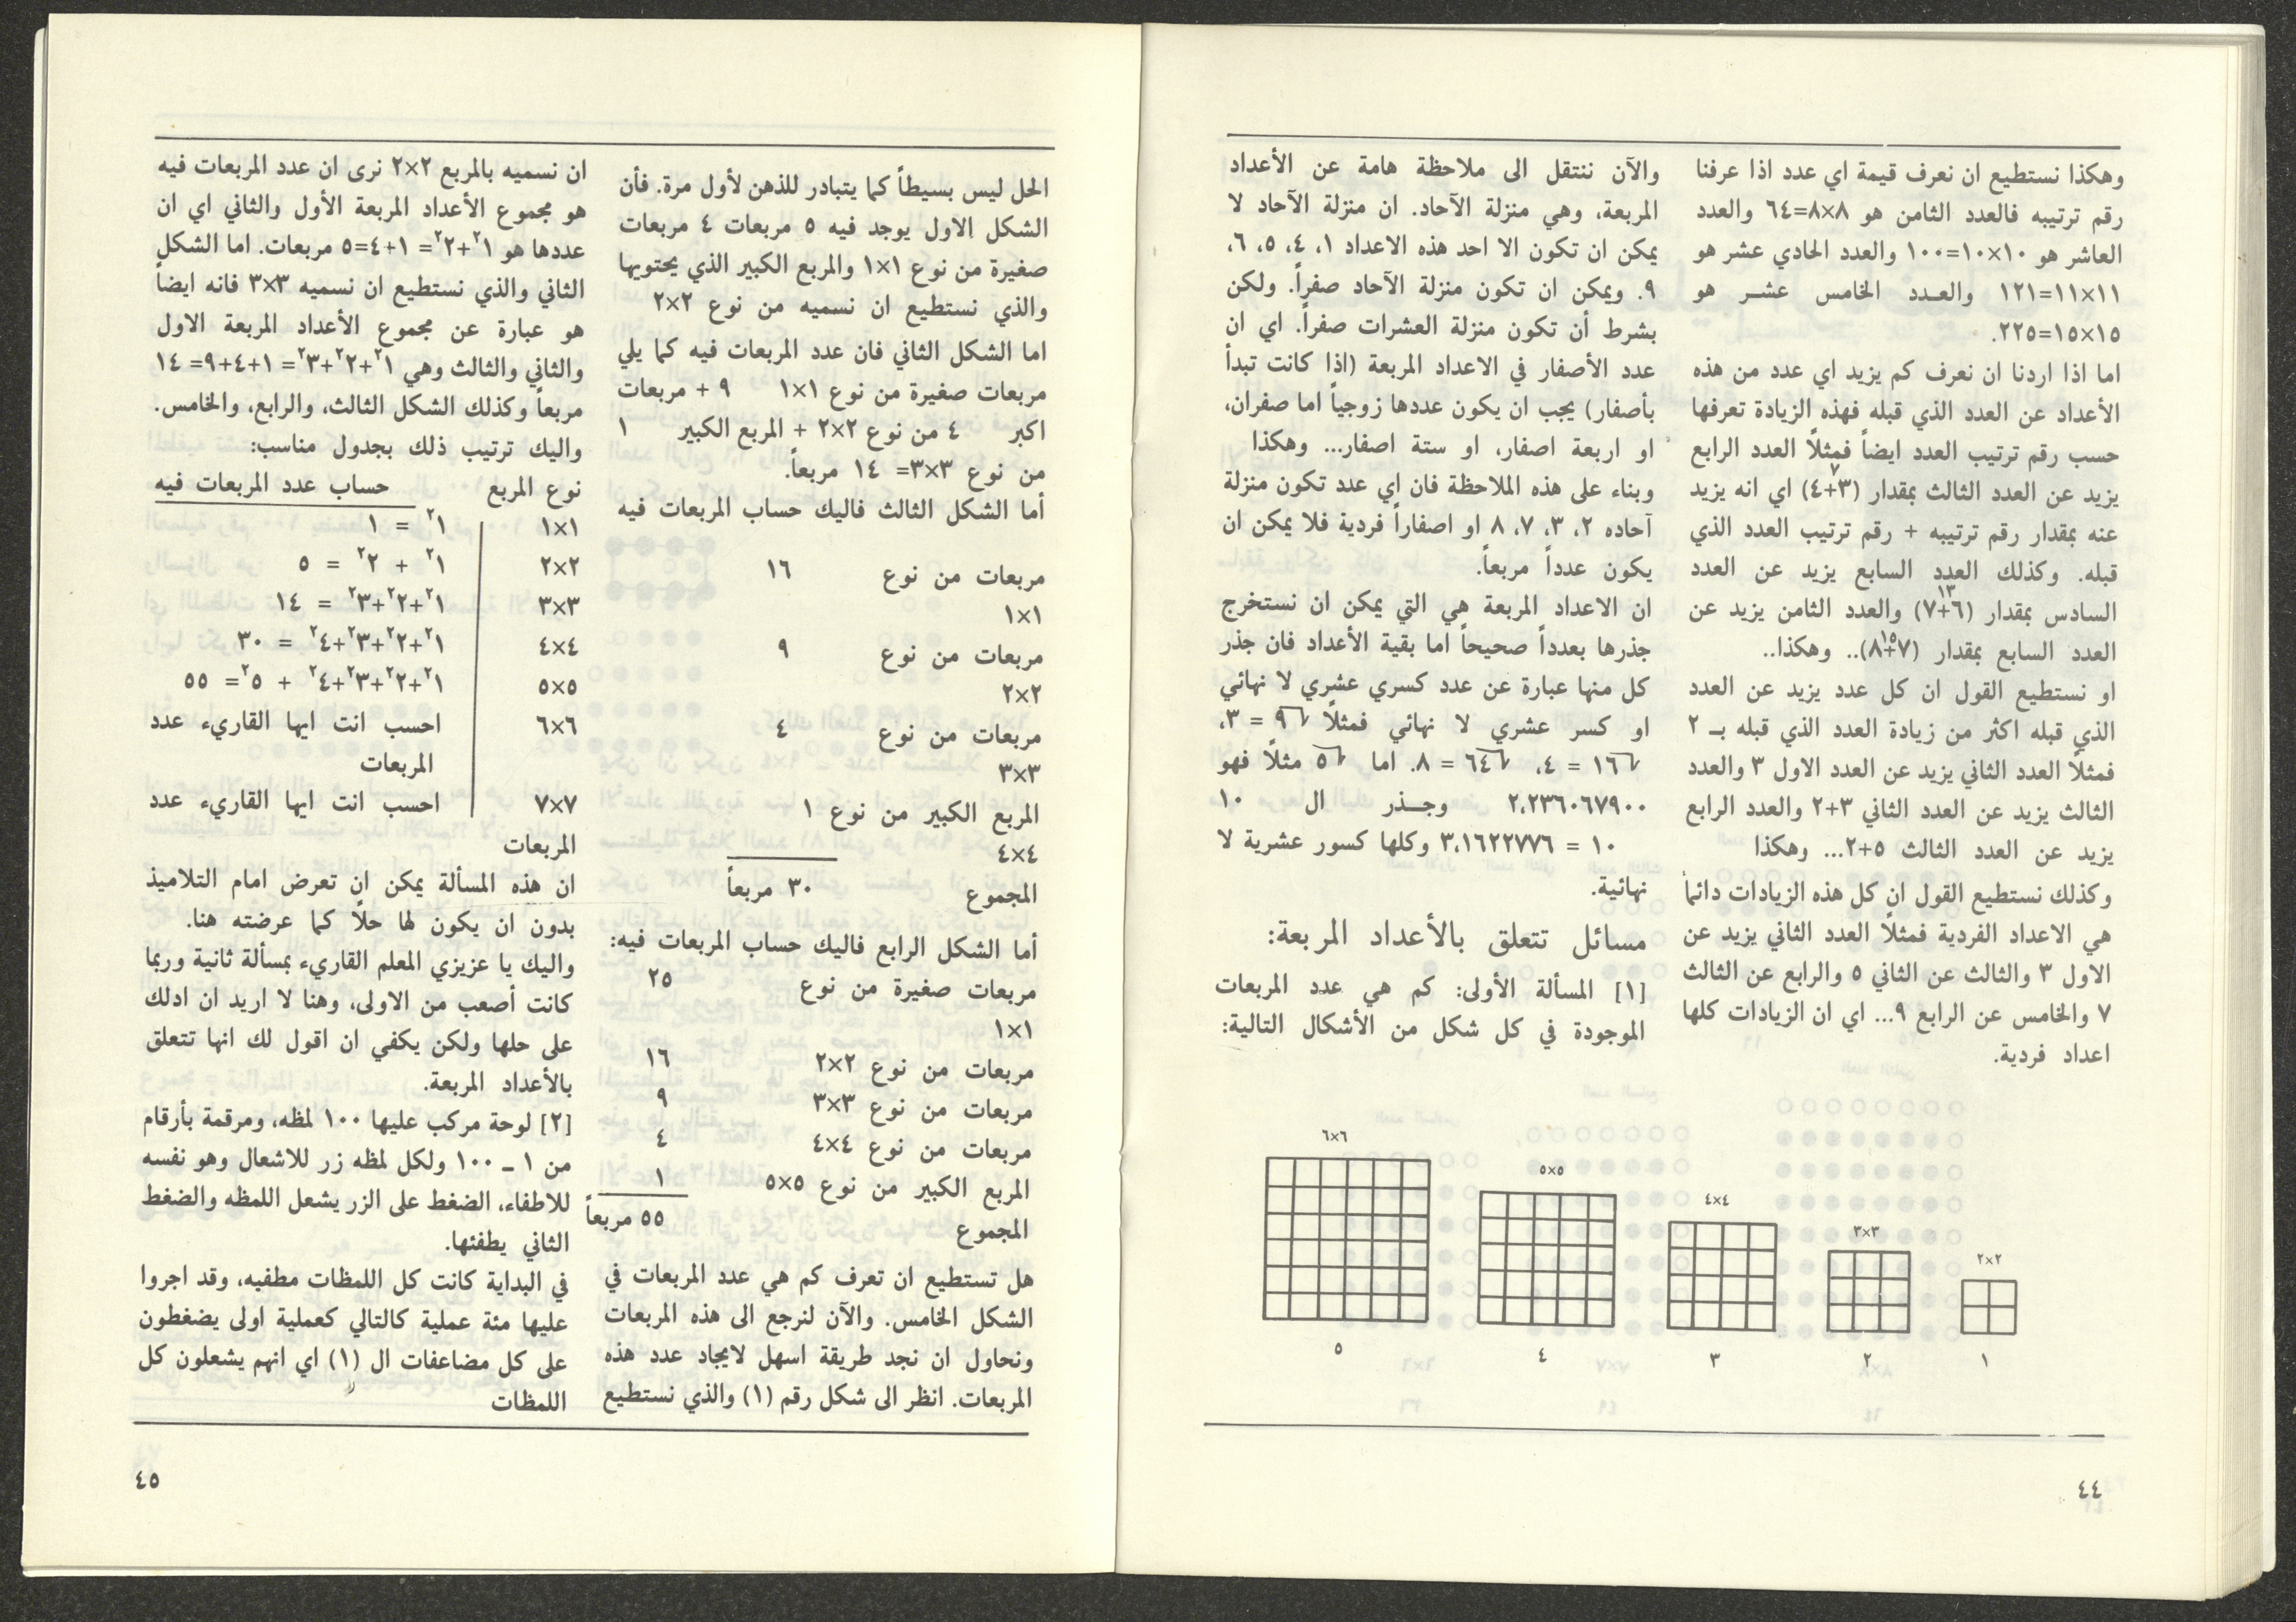 وهكذا نستطيع ان نعرف قيمة اي عدد اذا عرفنا
رقم ترتيبه فالعدد الثامن هو ٨×٨=٦٤ والعدد
العاشر هو ١٠×١٠=١٠٠ والعدد الحادي عشر هو
١١×١١=١٢١ والعـدد الخامس عشـر هو
١٥×١٥=٢٢٥.
اما اذا اردنا ان نعرف كم يزيد اي عدد من هذه
الأعداد عن العدد الذي قبله فهذه الزيادة تعرفها
حسب رقم ترتيب العدد ايضاً فمثلاً العدد الرابع
٧
يزيد عن العدد الثالث بمقدار (٣+٤) اي انه يزيد
عنه بمقدار رقم ترتيبه + رقم ترتيب العدد الذي
قبله. وكذلك العدد السابع يزيد عن العدد
١٣
السادس بمقدار (٦+٧) والعدد الثامن يزيد عن
١٥
العدد السابع بمقدار (٧+٨).. وهكذا..
او نستطيع القول ان كل عدد يزيد عن العدد
الذي قبله اكثر من زيادة العدد الذي قبله بـ ٢
فمثلاً العدد الثاني يزيد عن العدد الاول ٣ والعدد
الثالث يزيد عن العدد الثاني ٣+٢ والعدد الرابع
يزيد عن العدد الثالث ٥+٢... وهكذا
وكذلك نستطيع القول ان كل هذه الزيادات دائماً
هي الاعداد الفردية فمثلاً العدد الثاني يزيد عن
الاول ٣ والثالث عن الثاني ٥ والرابع عن الثالث
٧ والخامس عن الرابع ٩... اي ان الزيادات كلها
اعداد فردية.
والآن ننتقل الى ملاحظة هامة عن الأعداد
المربعة، وهي منزلة الآحاد. ان منزلة الآحاد لا
يمكن ان تكون الا احد هذه الاعداد ١، ٤، ٥، ٦،
٩. ويمكن ان تكون منزلة الآحاد صفراً. ولكن
بشرط أن تكون منزلة العشرات صفراً. اي ان
عدد الأصفار في الاعداد المربعة (اذا كانت تبدأ
بأصفار) يجب ان يكون عددها زوجياً اما صفران،
او اربعة اصفار، او ستة اصفار... وهكذا
وبناء على هذه الملاحظة فان اي عدد تكون منزلة
آحاده ٢، ٣، ٧، ٨ او اصفاراً فردية فلا يمكن ان
يكون عدداً مربعاً.
ان الاعداد المربعة هي التي يمكن ان نستخرج
جذرها بعدداً صحيحاً اما بقية الأعداد فان جذر
كل منها عبارة عن عدد كسري عشري لا نهائي
او كسر عشري لا نهائي فمثلاً √٩ = ٣،
√١٦ = ٤، √٦٤ = ٨. اما √٥ مثلاً فهو
٢،٢٣٦٠٦٧٩٠٠ وجـذر ال ١٠
١٠ = ٣،١٦٢٢٧٧٦ وكلها كسور عشرية لا
نهائية.
مسائل تتعلق بالأعداد المربعة:
[١] المسألة الأولى: كم هي عدد المربعات
الموجودة في كل شكل من الأشكال التالية:
٢×٢
٣×٣
٤×٤
٥×٥
٦×٦
١ ٢ ٣ ٤ ٥
٤٤
الحل ليس بسيطاً كما يتبادر للذهن لأول مرة. فأن
الشكل الاول يوجد فيه ٥ مربعات ٤ مربعات
صغيرة من نوع ١×١ والمربع الكبير الذي يحتويها
والذي نستطيع ان نسميه من نوع ٢×٢
اما الشكل الثاني فان عدد المربعات فيه كما يلي
مربعات صغيرة من نوع ١×١ ٩ + مربعات
اكبر ٤ من نوع ٢×٢ + المربع الكبير ١
من نوع ٣×٣= ١٤ مربعاً.
أما الشكل الثالث فاليك حساب المربعات فيه
مربعات من نوع ١٦
١×١
مربعات من نوع ٩
٢×٢
مربعات من نوع ٤
٣×٣
المربع الكبير من نوع ١
٤×٤
المجموع ٣٠ مربعاً
أما الشكل الرابع فاليك حساب المربعات فيه:
مربعات صغيرة من نوع ٢٥
١×١
مربعات من نوع ٢×٢ ١٦
مربعات من نوع ٣×٣ ٩
مربعات من نوع ٤×٤ ٤
المربع الكبير من نوع ٥×٥ ١
المجموع ٥٥ مربعاً
هل تستطيع ان تعرف كم هي عدد المربعات في
الشكل الخامس. والآن لنرجع الى هذه المربعات
ونحاول ان نجد طريقة اسهل لايجاد عدد هذه
المربعات. انظر الى شكل رقم (١) والذي نستطيع
ان نسميه بالمربع ٢×٢ نرى ان عدد المربعات فيه
هو مجموع الأعداد المربعة الأول والثاني اي ان
عددها هو ١²+٢²= ١+٤=٥ مربعات. اما الشكل
الثاني والذي نستطيع ان نسميه ٣×٣ فانه ايضاً
هو عبارة عن مجموع الأعداد المربعة الاول
والثاني والثالث وهي ١²+٢²+٣²= ١+٤+٩= ١٤
مربعاً وكذلك الشكل الثالث، والرابع، والخامس.
واليك ترتيب ذلك بجدول مناسب:
نوع المربع حساب عدد المربعات فيه
١×١ ١² = ١
٢×٢ ١² + ٢² = ٥
٣×٣ ١²+٢²+٣² = ١٤
٤×٤ ١²+٢²+٣²+٤² = ٣٠
٥×٥ ١²+٢²+٣²+٤² + ٥²= ٥٥
٦×٦ احسب انت ايها القاريء عدد
المربعات
٧×٧ احسب انت ايها القاريء عدد
المربعات
ان هذه المسألة يمكن ان تعرض امام التلاميذ
بدون ان يكون لها حلاً كما عرضته هنا.
واليك يا عزيزي المعلم القاريء بمسألة ثانية وربما
كانت أصعب من الاولى، وهنا لا اريد ان ادلك
على حلها ولكن يكفي ان اقول لك انها تتعلق
بالأعداد المربعة.
[٢] لوحة مركب عليها ١٠٠ لمظه، ومرقمة بأرقام
من ١ ــ ١٠٠ ولكل لمظه زر للاشعال وهو نفسه
للاطفاء، الضغط على الزر يشعل اللمظه والضغط
الثاني يطفئها.
في البداية كانت كل اللمظات مطفيه، وقد اجروا
عليها مئة عملية كالتالي كعملية اولى يضغطون
على كل مضاعفات ال (١) اي انهم يشعلون كل
اللمظات
٤٥